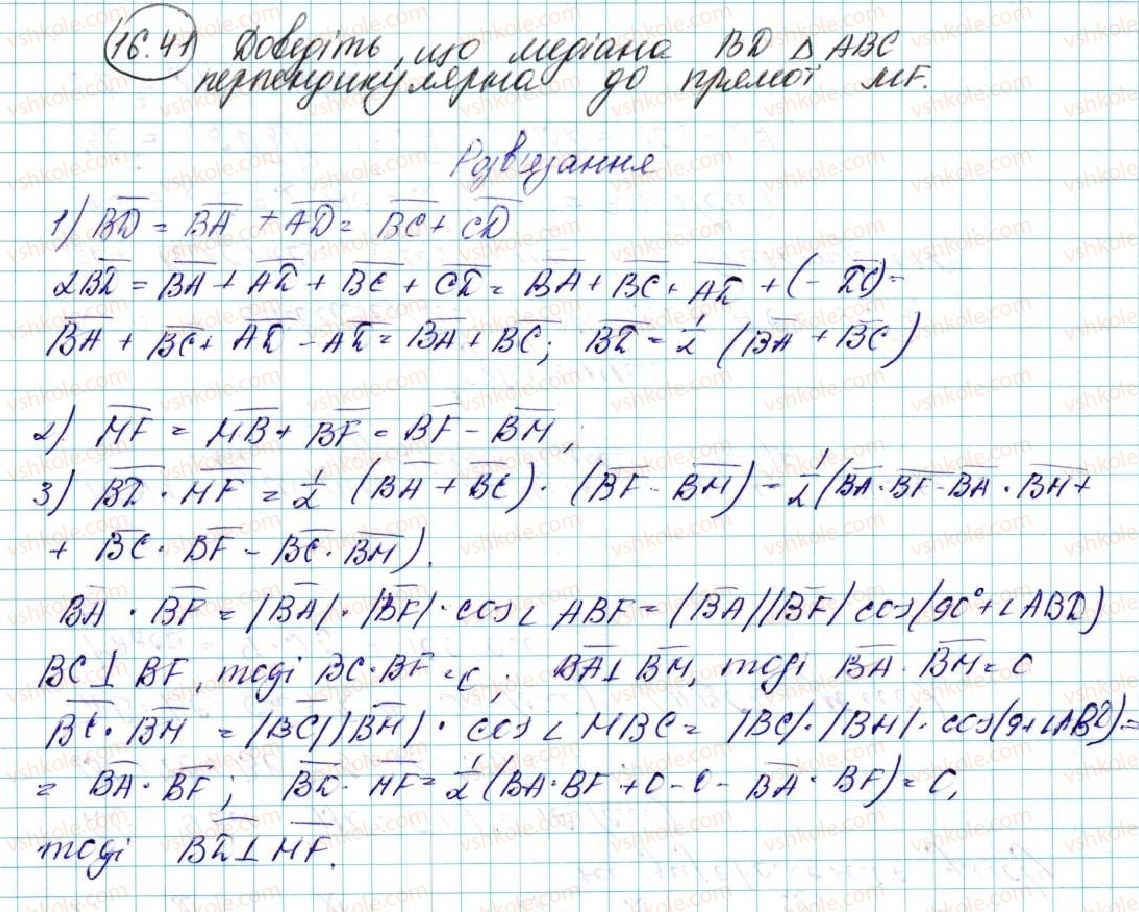 16.41 Доведіть, що медіана BD △ ABC
перпендикулярна до прямої MF.
Розв'язання
1) BD = BA + AD = BC + CD
2BD = BA + AD + BC + CD = BA + BC + AD + (- DC) =
BA + BC + AD - AD = BA + BC; BD = 1/2 (BA + BC)
2) MF = MB + BF = BF - BM;
3) BD · MF = 1/2 (BA + BC) · (BF - BM) = 1/2 (BA · BF - BA · BM +
+ BC · BF - BC · BM).
BA · BF = |BA| · |BF| · cos∠ABF = |BA||BF| cos(90° + ∠ABD)
BC ⊥ BF, тоді BC · BF = 0; BA ⊥ BM, тоді BA · BM = 0
BC · BM = |BC||BM| · cos∠MBC = |BC| · |BM| · cos(9+∠ABD) =
= BA · BF; BD · MF = 1/2 (BA · BF + 0 - 0 - BA · BF) = 0,
тоді BD ⊥ MF.